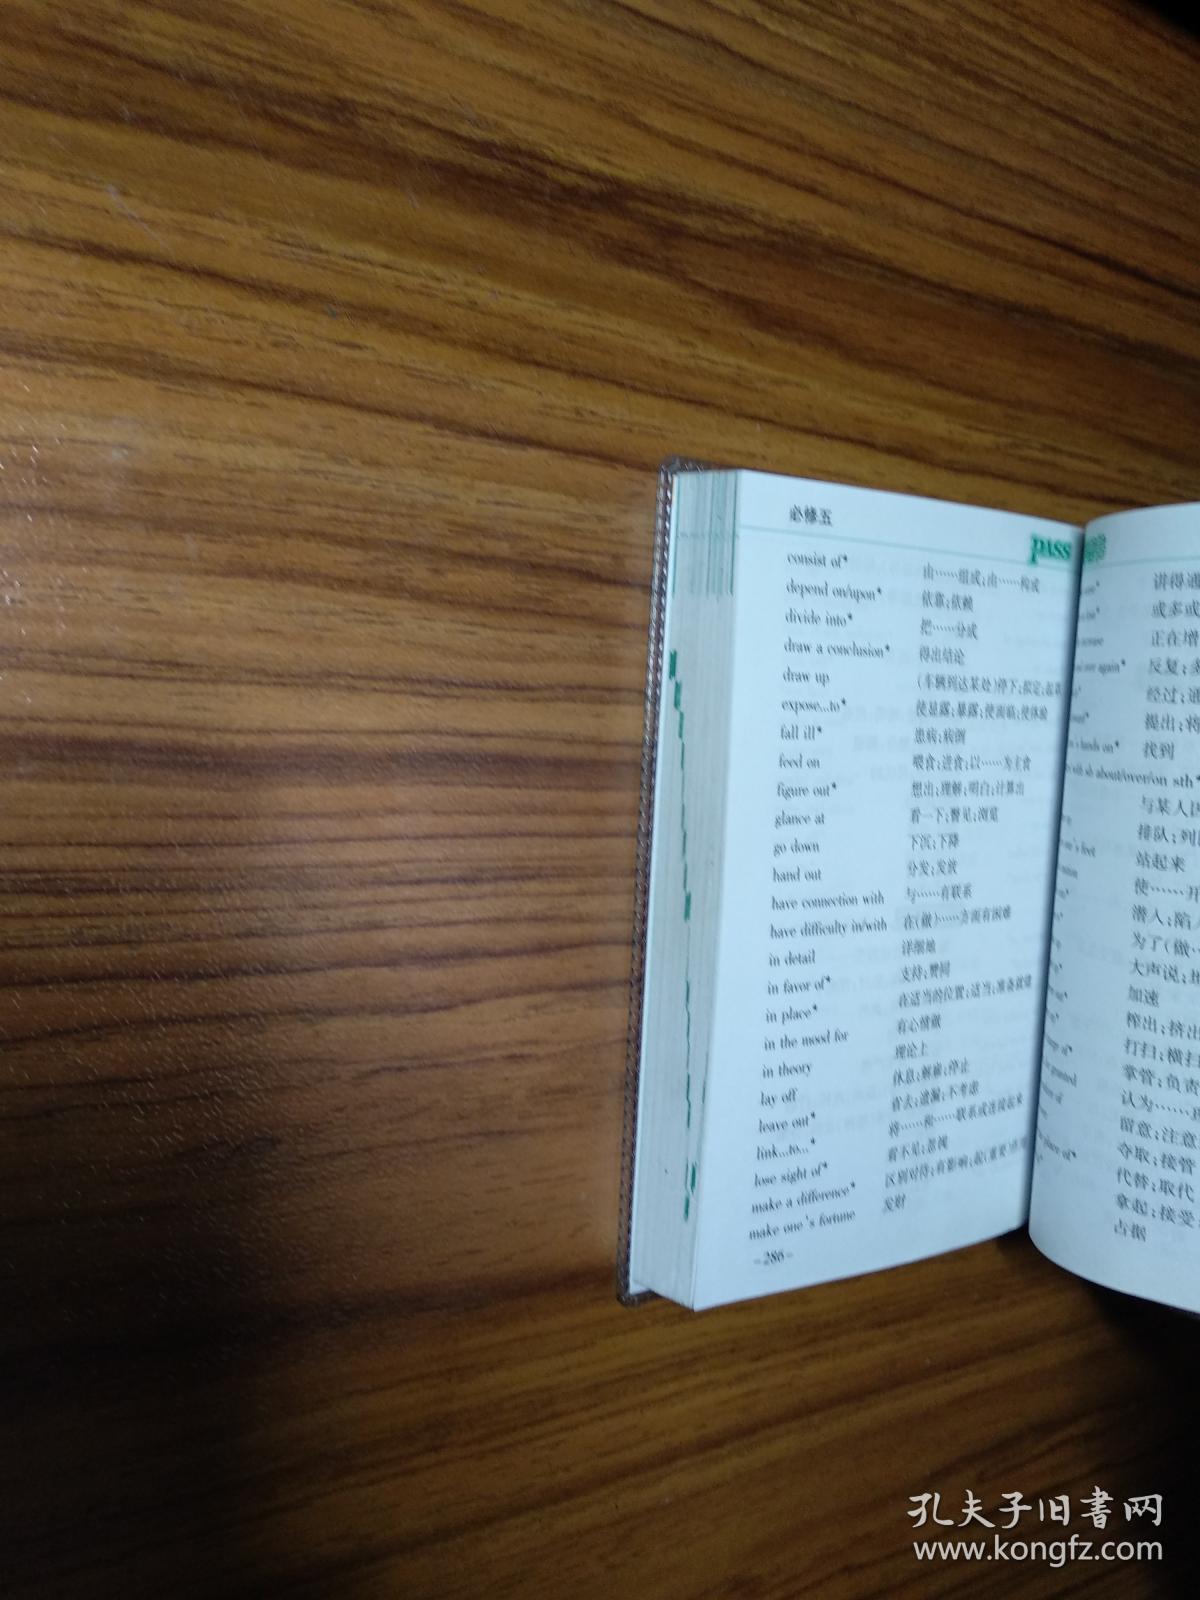 必修五
PASS
consist of* 由……组成;由……构成
depend on/upon* 依靠;依赖
divide into* 把……分成
draw a conclusion* 得出结论
draw up (车辆到达某处)停下;拟定;起草
expose...to* 使显露;暴露;使面临;使体验
fall ill* 患病;病倒
feed on 喂食;进食;以……为主食
figure out* 想出;理解;明白;计算出
glance at 看一下;瞥见;浏览
go down 下沉;下降
hand out 分发;发放
have connection with 与……有联系
have difficulty in/with 在(做)……方面有困难
in detail 详细地
in favor of* 支持;赞同
in place* 在适当的位置;适当;准备就绪
in the mood for 有心情做
in theory 理论上
lay off 休息;解雇;停止
leave out* 省去;遗漏;不考虑
link...to...* 将……和……联系或连接起来
lose sight of* 看不见;忽视
make a difference* 区别对待;有影响;起(重要)作用
make one's fortune 发财
-286-
讲得通
或多或
正在增
again* 反复;多
经过;通
提出;将
hands on* 找到
about/over/on sth*
与某人因
排队;列
feet 站起来
使……开
潜入;陷入
为了(做…
大声说;
加速
榨出;挤出
打扫;横扫
掌管;负责
granted 认为……
留意;注意
夺取;接管
place of* 代替;取代
拿起;接受
占据
孔夫子旧书网
www.kongfz.com